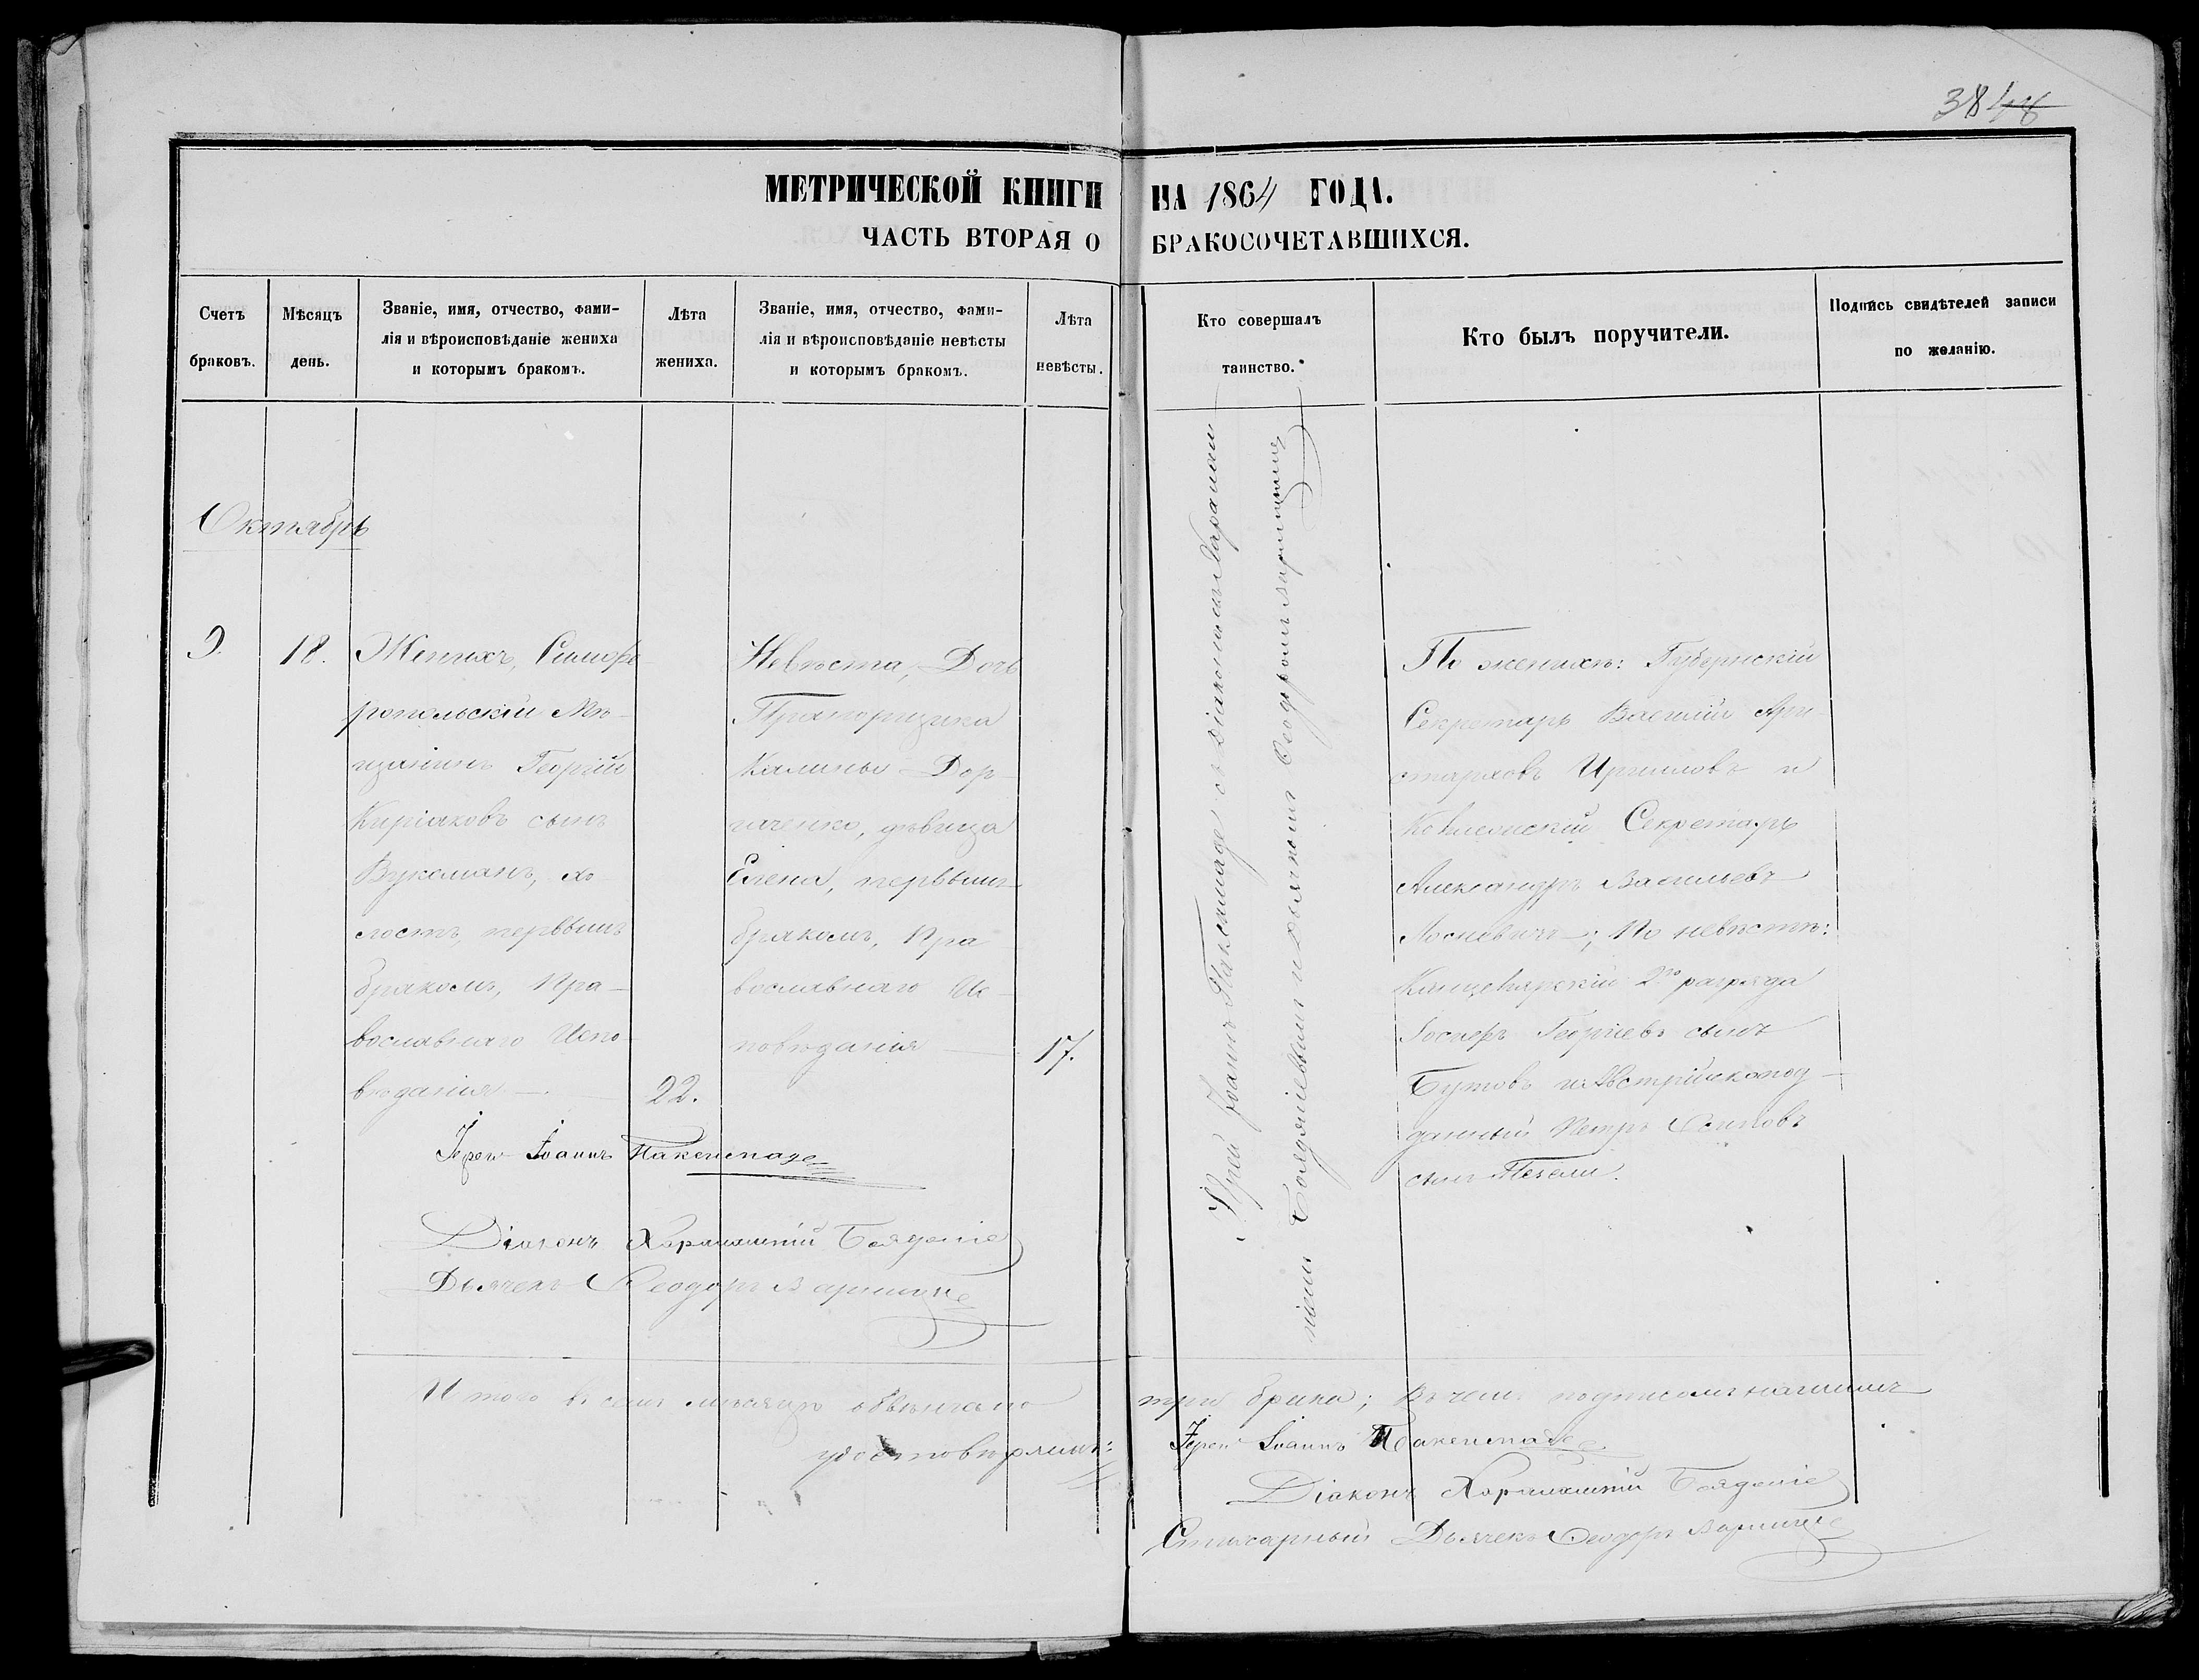 МЕТРИЧЕСКОЙ КНИГИ НА 1864 ГОДА.
ЧАСТЬ ВТОРАЯ О БРАКОСОЧЕТАВШИХСЯ.
Счетъ браковъ.
Мѣсяцъ день.
Званіе, имя, отчество, фами-
лія и вѣроисповѣданіе жениха
и которымъ бракомъ.
Лѣта
жениха.
Званіе, имя, отчество, фами-
лія и вѣроисповѣданіе невѣсты
и которымъ бракомъ.
Лѣта
невѣсты.
Кто совершалъ
таинство.
Кто былъ поручители.
Подпись свидѣтелей записи
по желанію.
Октябрь
9.
18.
Женихъ, Симфе
ропольскій Мѣ-
щанинъ Георгій
Киріаковъ сынъ
Вуксманъ, хо-
лостъ, первымъ
бракомъ, Пра-
вославнаго Испо-
вѣданія
22.
Невѣста, Дочь
Прапорщика
Калины Дор-
гаченко, дѣвица
Елена, первымъ
бракомъ, Пра
вославнаго Ис-
повѣданія
17.
Іерей Іоаннъ Пакенпаде съ Діакономъ Харалам
піемъ и дьячкомъ Ѳеодоромъ
По женихѣ: Губернскій
Секретарь Василій Ари-
старховъ и
Секретарь
Александръ Васильевъ
По невѣстѣ:
Канцелярскій 2го разряда
Іосифъ Георгіевъ сынъ
Бутовъ и Австрійскопод-
данный Петръ Осиповъ
сынъ
Іерей Іоаннъ Пакенпаде
Діаконъ Харалампій
Дьячекъ Ѳеодоръ
Итого въ семъ мѣсяцѣ обвѣнчано три брака; въ чемъ подписомъ нашимъ
удостовѣряемъ:
Іерей Іоаннъ Пакенпаде
Діаконъ Харалампій
Стихарный Дьячекъ Ѳеодоръ